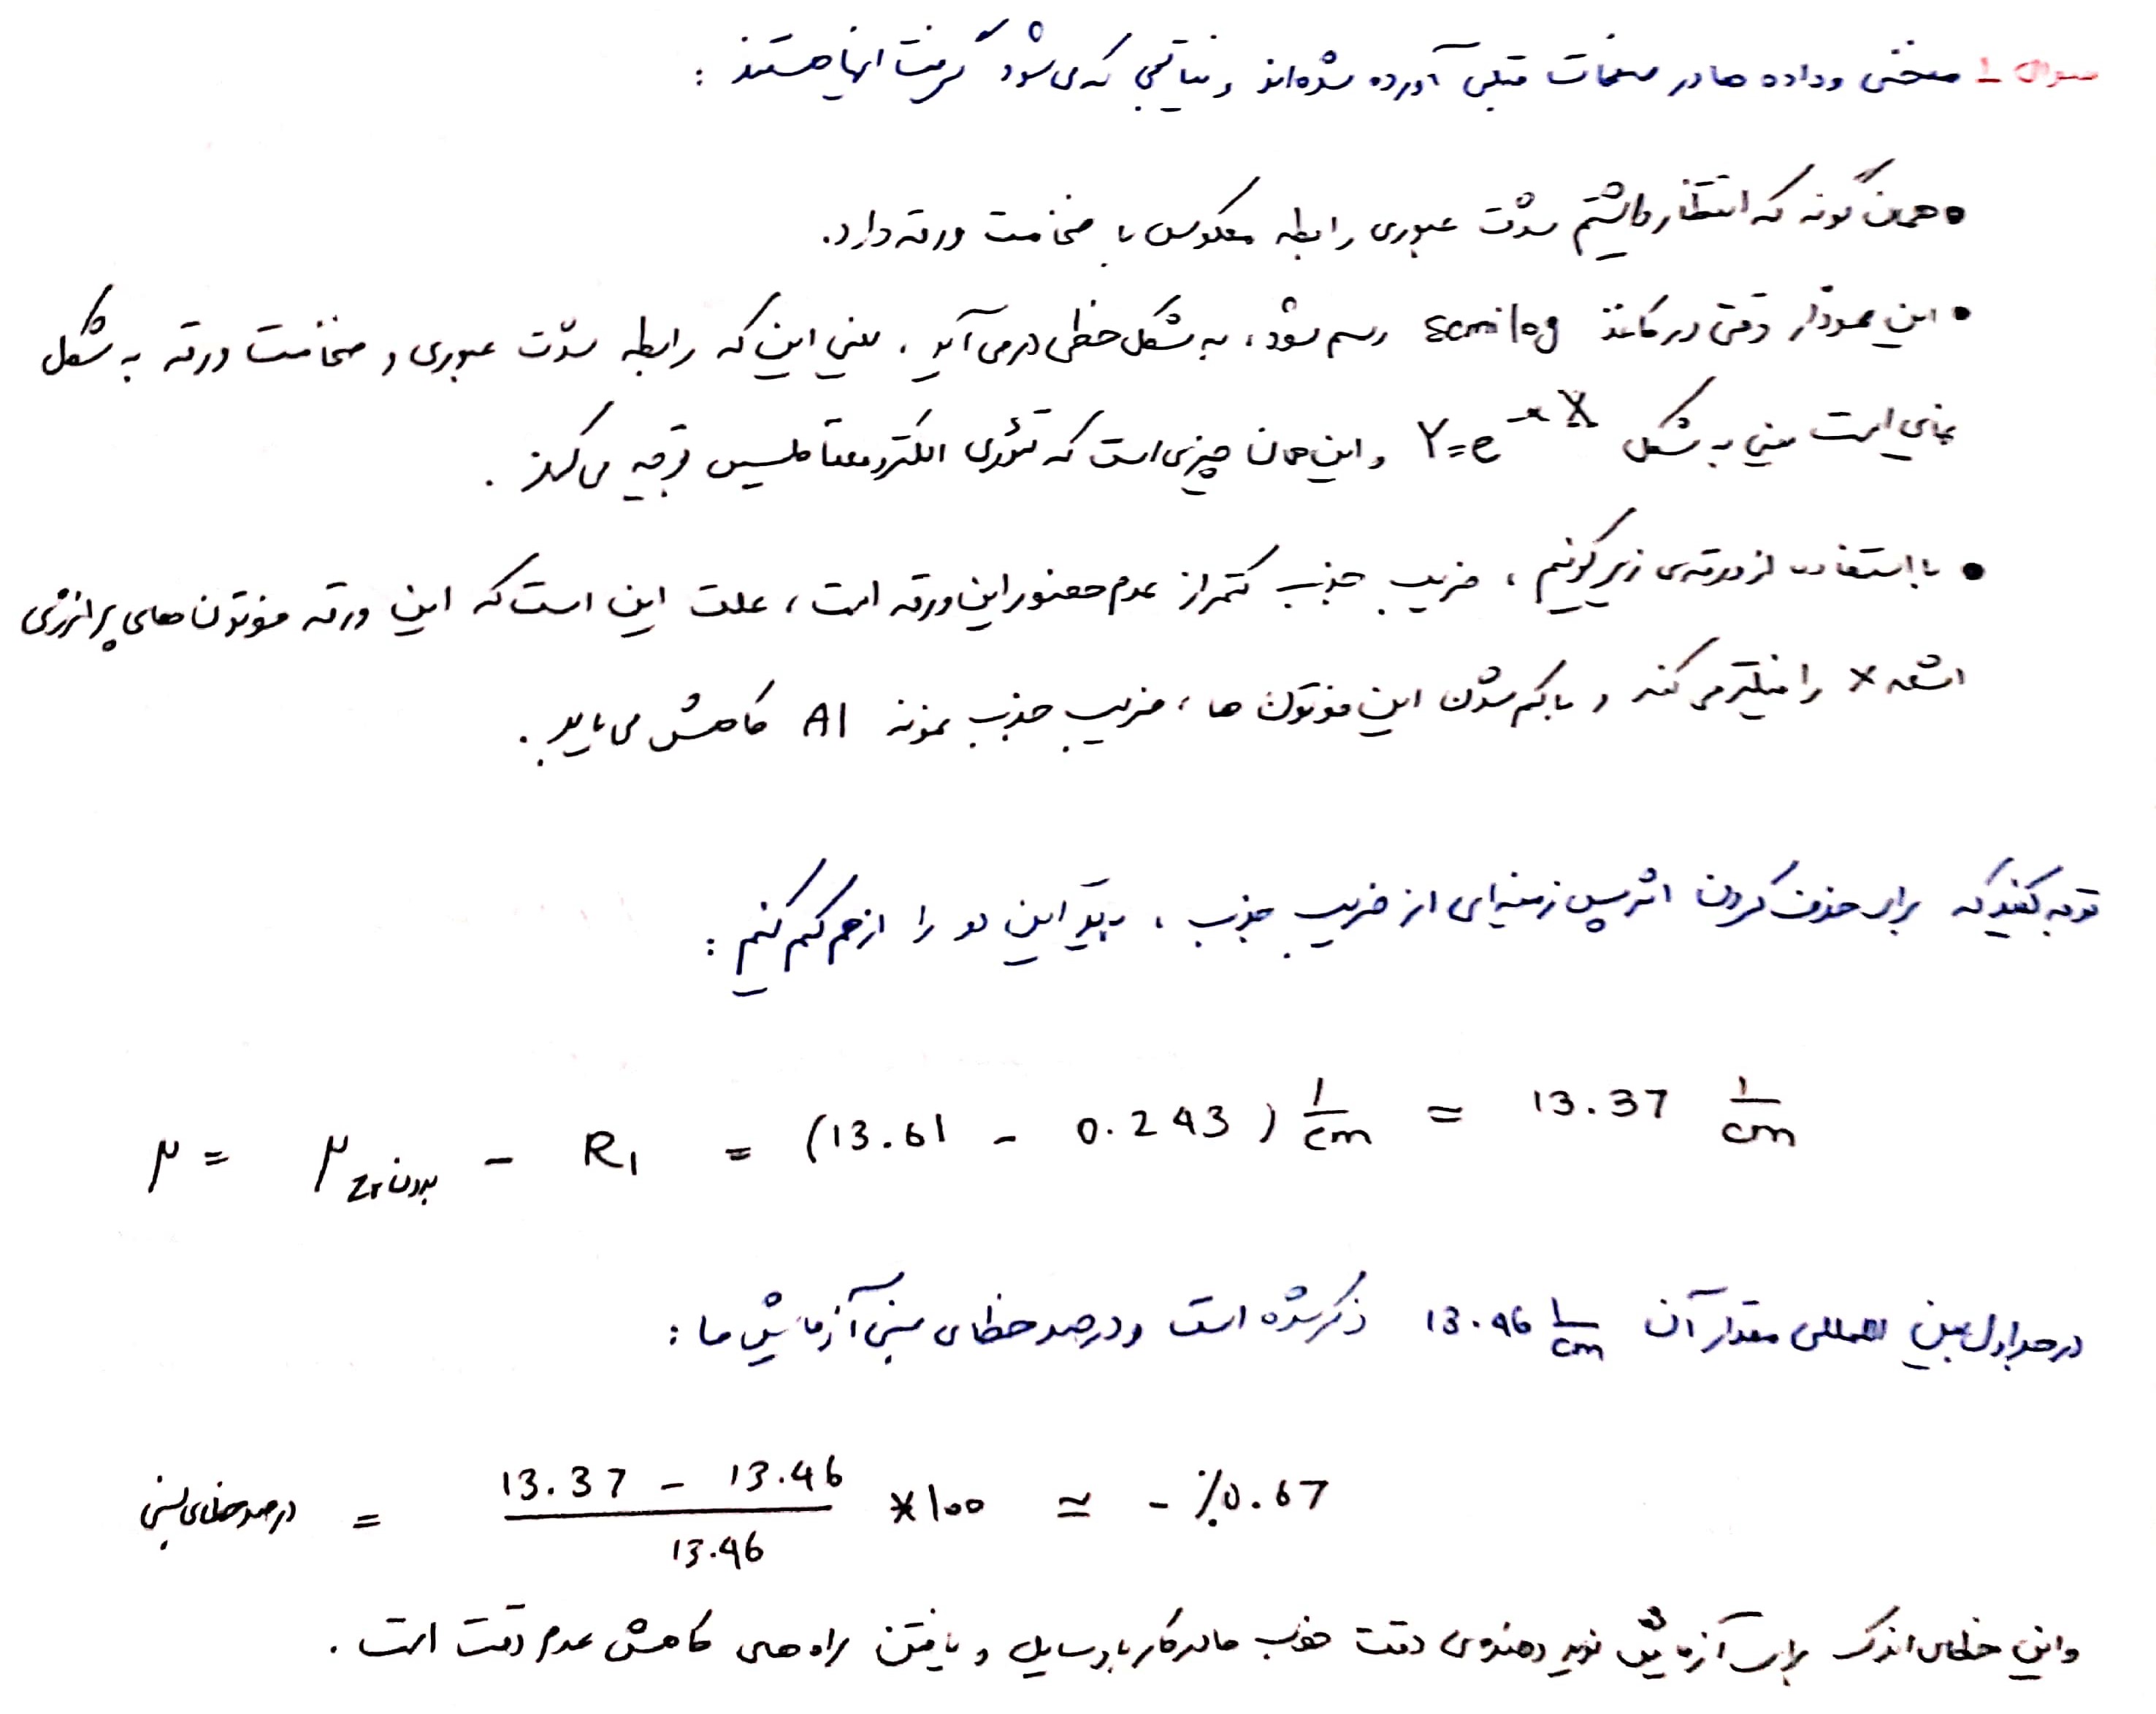 سوال 1 - منحنی و داده ها در صفحات قبلی آورده شده‌اند و نتایجی که می شود گرفت اینها هستند :
• همان گونه که انتظار داشتیم شدت عبوری رابطه معکوس با ضخامت ورقه دارد.
• این نمودار وقتی در کاغذ semilog رسم شود، به شکل خطی در می آید. یعنی این که رابطه شدت عبوری و ضخامت ورقه به شکل
نمایی است یعنی به شکل Y=e^-αX و این همان چیزی است که تئوری الکترومغناطیس توجیه می کند.
• با استفاده از ورقه‌ی زیرکونیم، ضریب جذب کمتر از عدم حضور این ورقه است، علت این است که این ورقه فوتون های پر انرژی
اشعه X را فیلتر می کند و با کم شدن این فوتون ها، ضریب جذب نمونه Al کاهش می یابد.
توجه کنید که برای حذف کردن اثر پس زمینه‌ای از ضریب جذب، باید این دو را از هم کم کنیم :
μ = μ بدون Zr - R1 = (13.61 - 0.243) 1/cm = 13.37 1/cm
در جداول بین المللی مقدار آن 13.46 1/cm ذکر شده است و درصد خطای نسبی آزمایش ما :
درصد خطای نسبی = (13.37 - 13.46)/13.46 * 100 ≃ - %0.67
و این خطای اندک برای آزمایش نوید دهنده‌ی دقت خوب ما در کار با وسایل و یافتن راه های کاهش عدم دقت است.